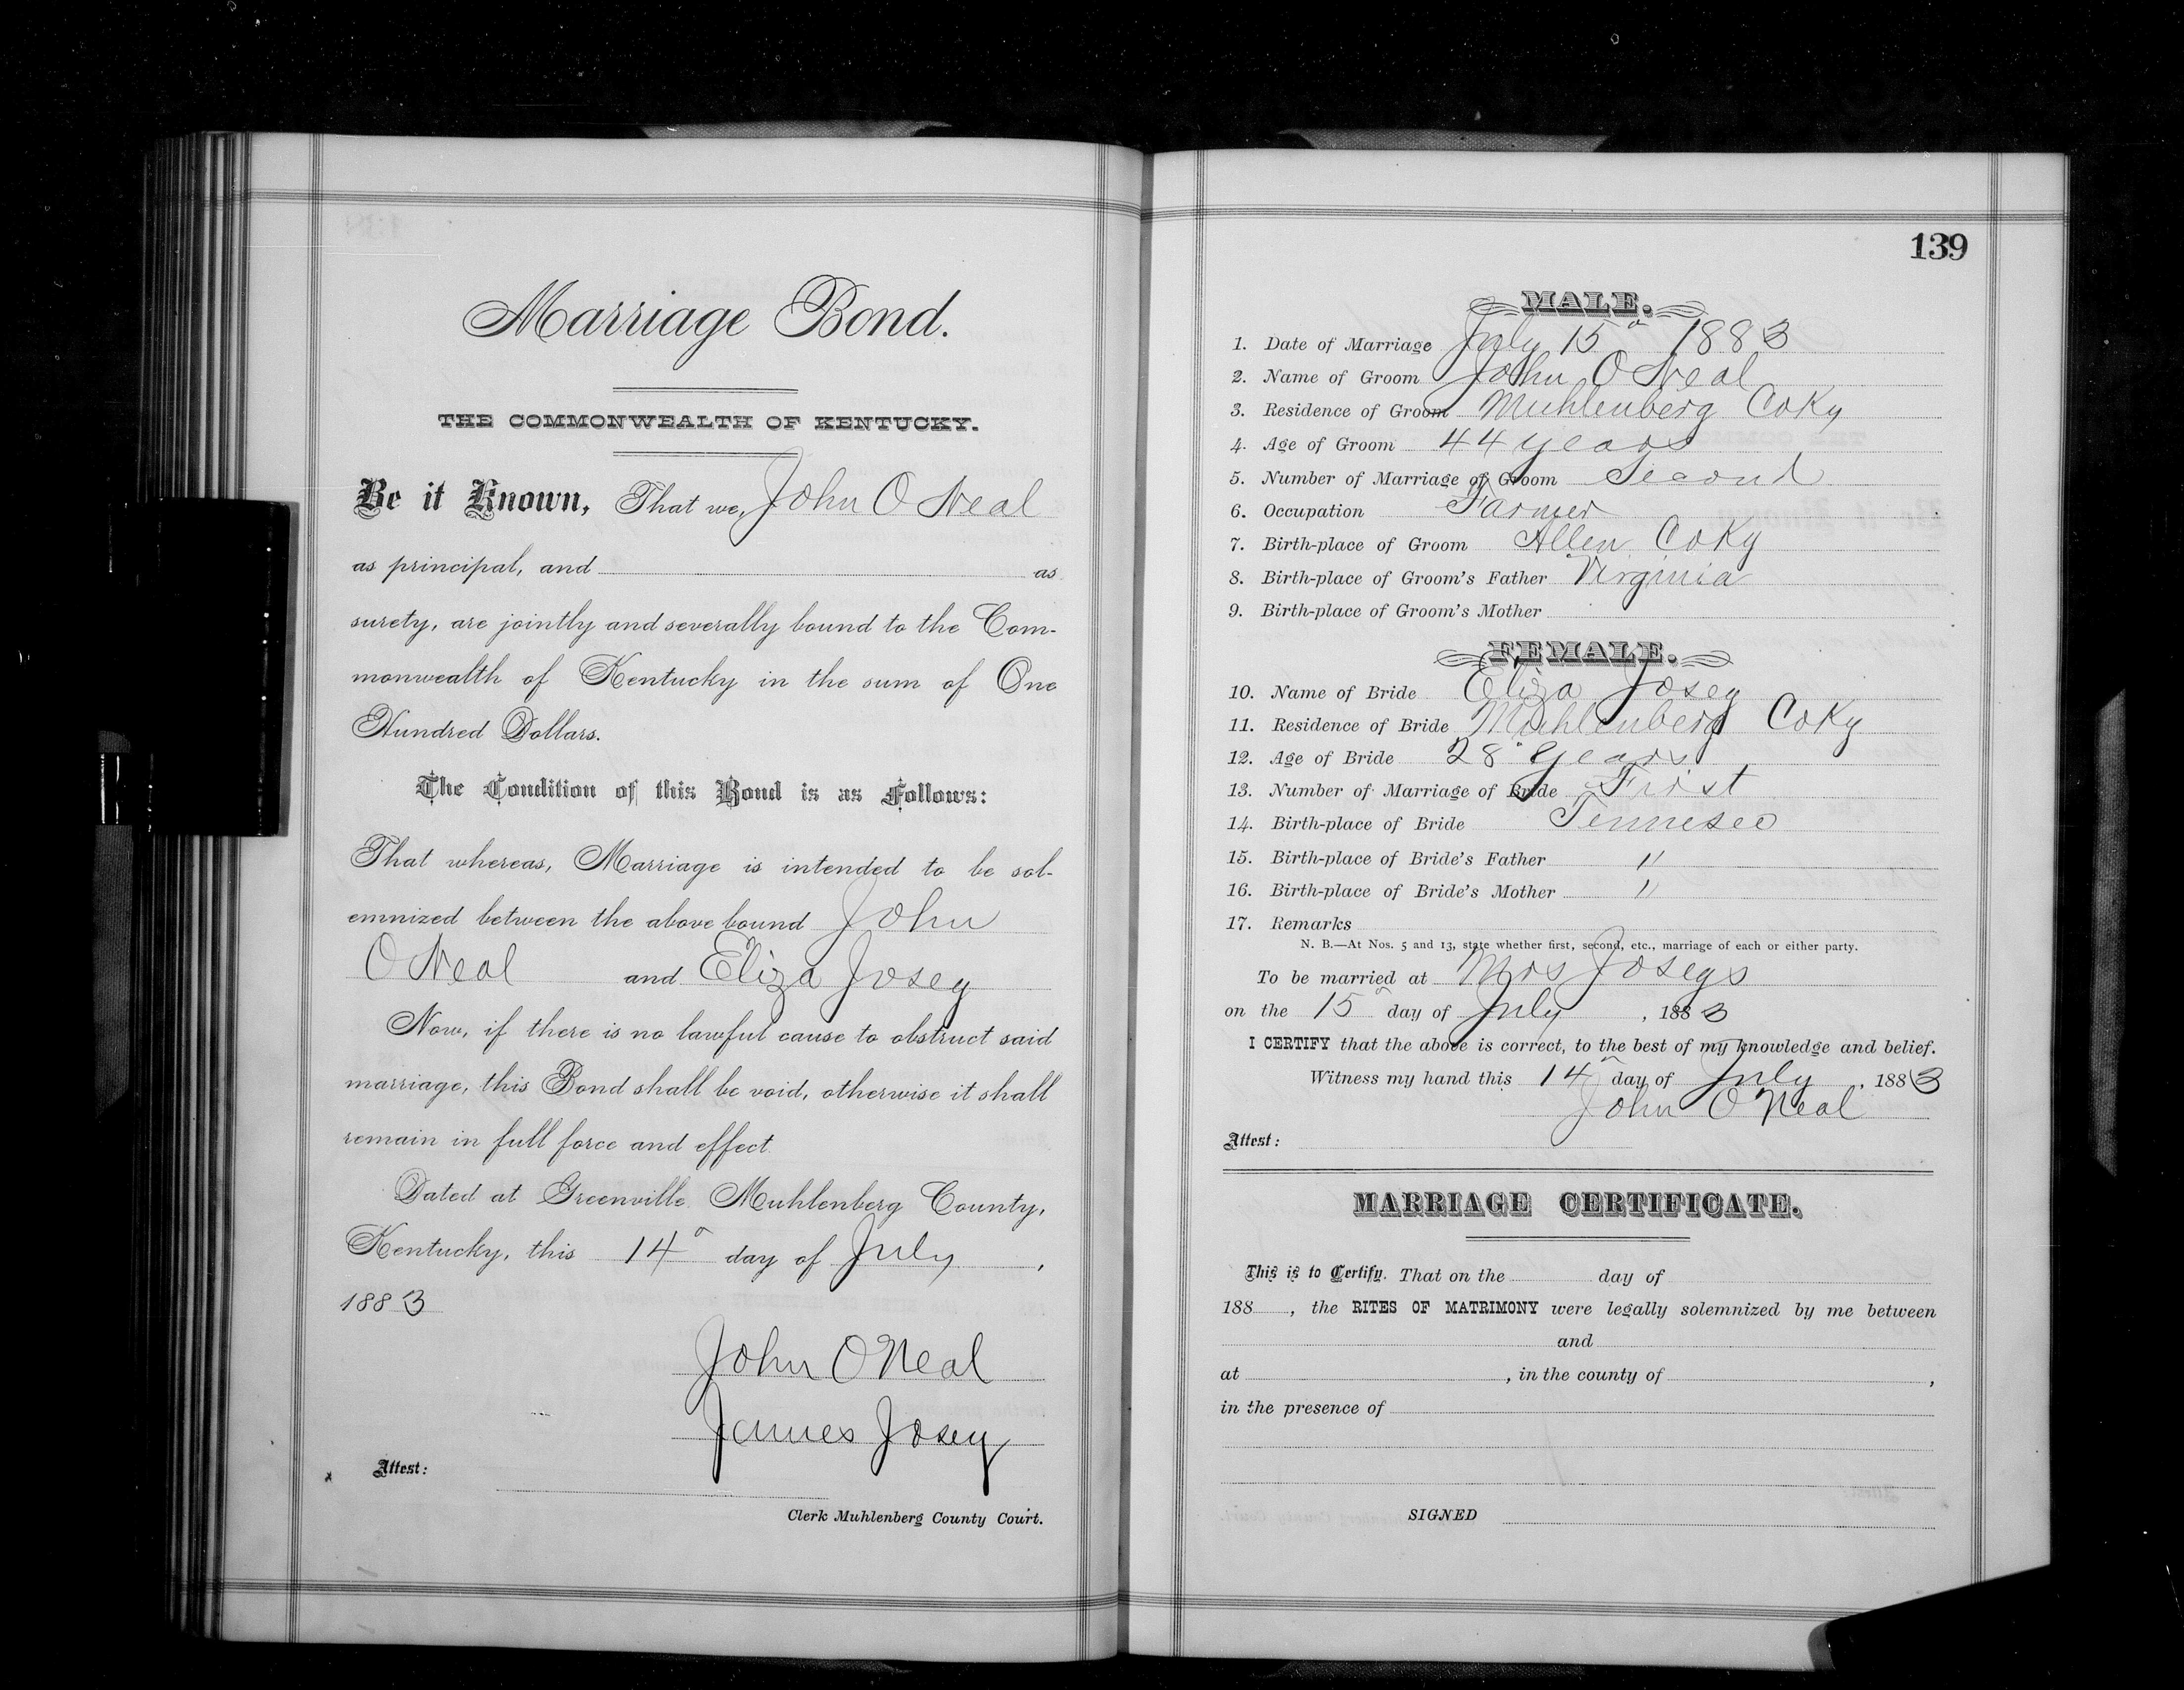 Marriage Bond.
THE COMMONWEALTH OF KENTUCKY.
Be it Known, That we, John O Neal
as principal, and as
surety, are jointly and severally bound to the Com-
monwealth of Kentucky in the sum of One
Hundred Dollars.
The Condition of this Bond is as Follows:
That whereas, Marriage is intended to be sol-
emnized between the above bound John
O Neal and Eliza Josey
Now, if there is no lawful cause to obstruct said
marriage, this Bond shall be void, otherwise it shall
remain in full force and effect.
Dated at Greenville, Muhlenberg County,
Kentucky, this 14" day of July,
1883
John O Neal
James Josey
Attest:
Clerk Muhlenberg County Court.
139
MALE.
1. Date of Marriage July 15" 1883
2. Name of Groom John O Neal
3. Residence of Groom Muhlenberg Co Ky
4. Age of Groom 44 years
5. Number of Marriage of Groom Second
6. Occupation Farmer
7. Birth-place of Groom Allen Co Ky
8. Birth-place of Groom's Father Virginia
9. Birth-place of Groom's Mother
FEMALE.
10. Name of Bride Eliza Josey
11. Residence of Bride Muhlenberg Co Ky
12. Age of Bride 28 years
13. Number of Marriage of Bride First
14. Birth-place of Bride Tennesee
15. Birth-place of Bride's Father "
16. Birth-place of Bride's Mother "
17. Remarks
N. B.—At Nos. 5 and 13, state whether first, second, etc., marriage of each or either party.
To be married at Mrs Joseys
on the 15" day of July, 1883
I CERTIFY that the above is correct, to the best of my knowledge and belief.
Witness my hand this 14" day of July, 1883
John O Neal
Attest:
MARRIAGE CERTIFICATE.
This is to Certify, That on the day of
188 , the RITES OF MATRIMONY were legally solemnized by me between
and
at , in the county of ,
in the presence of
SIGNED